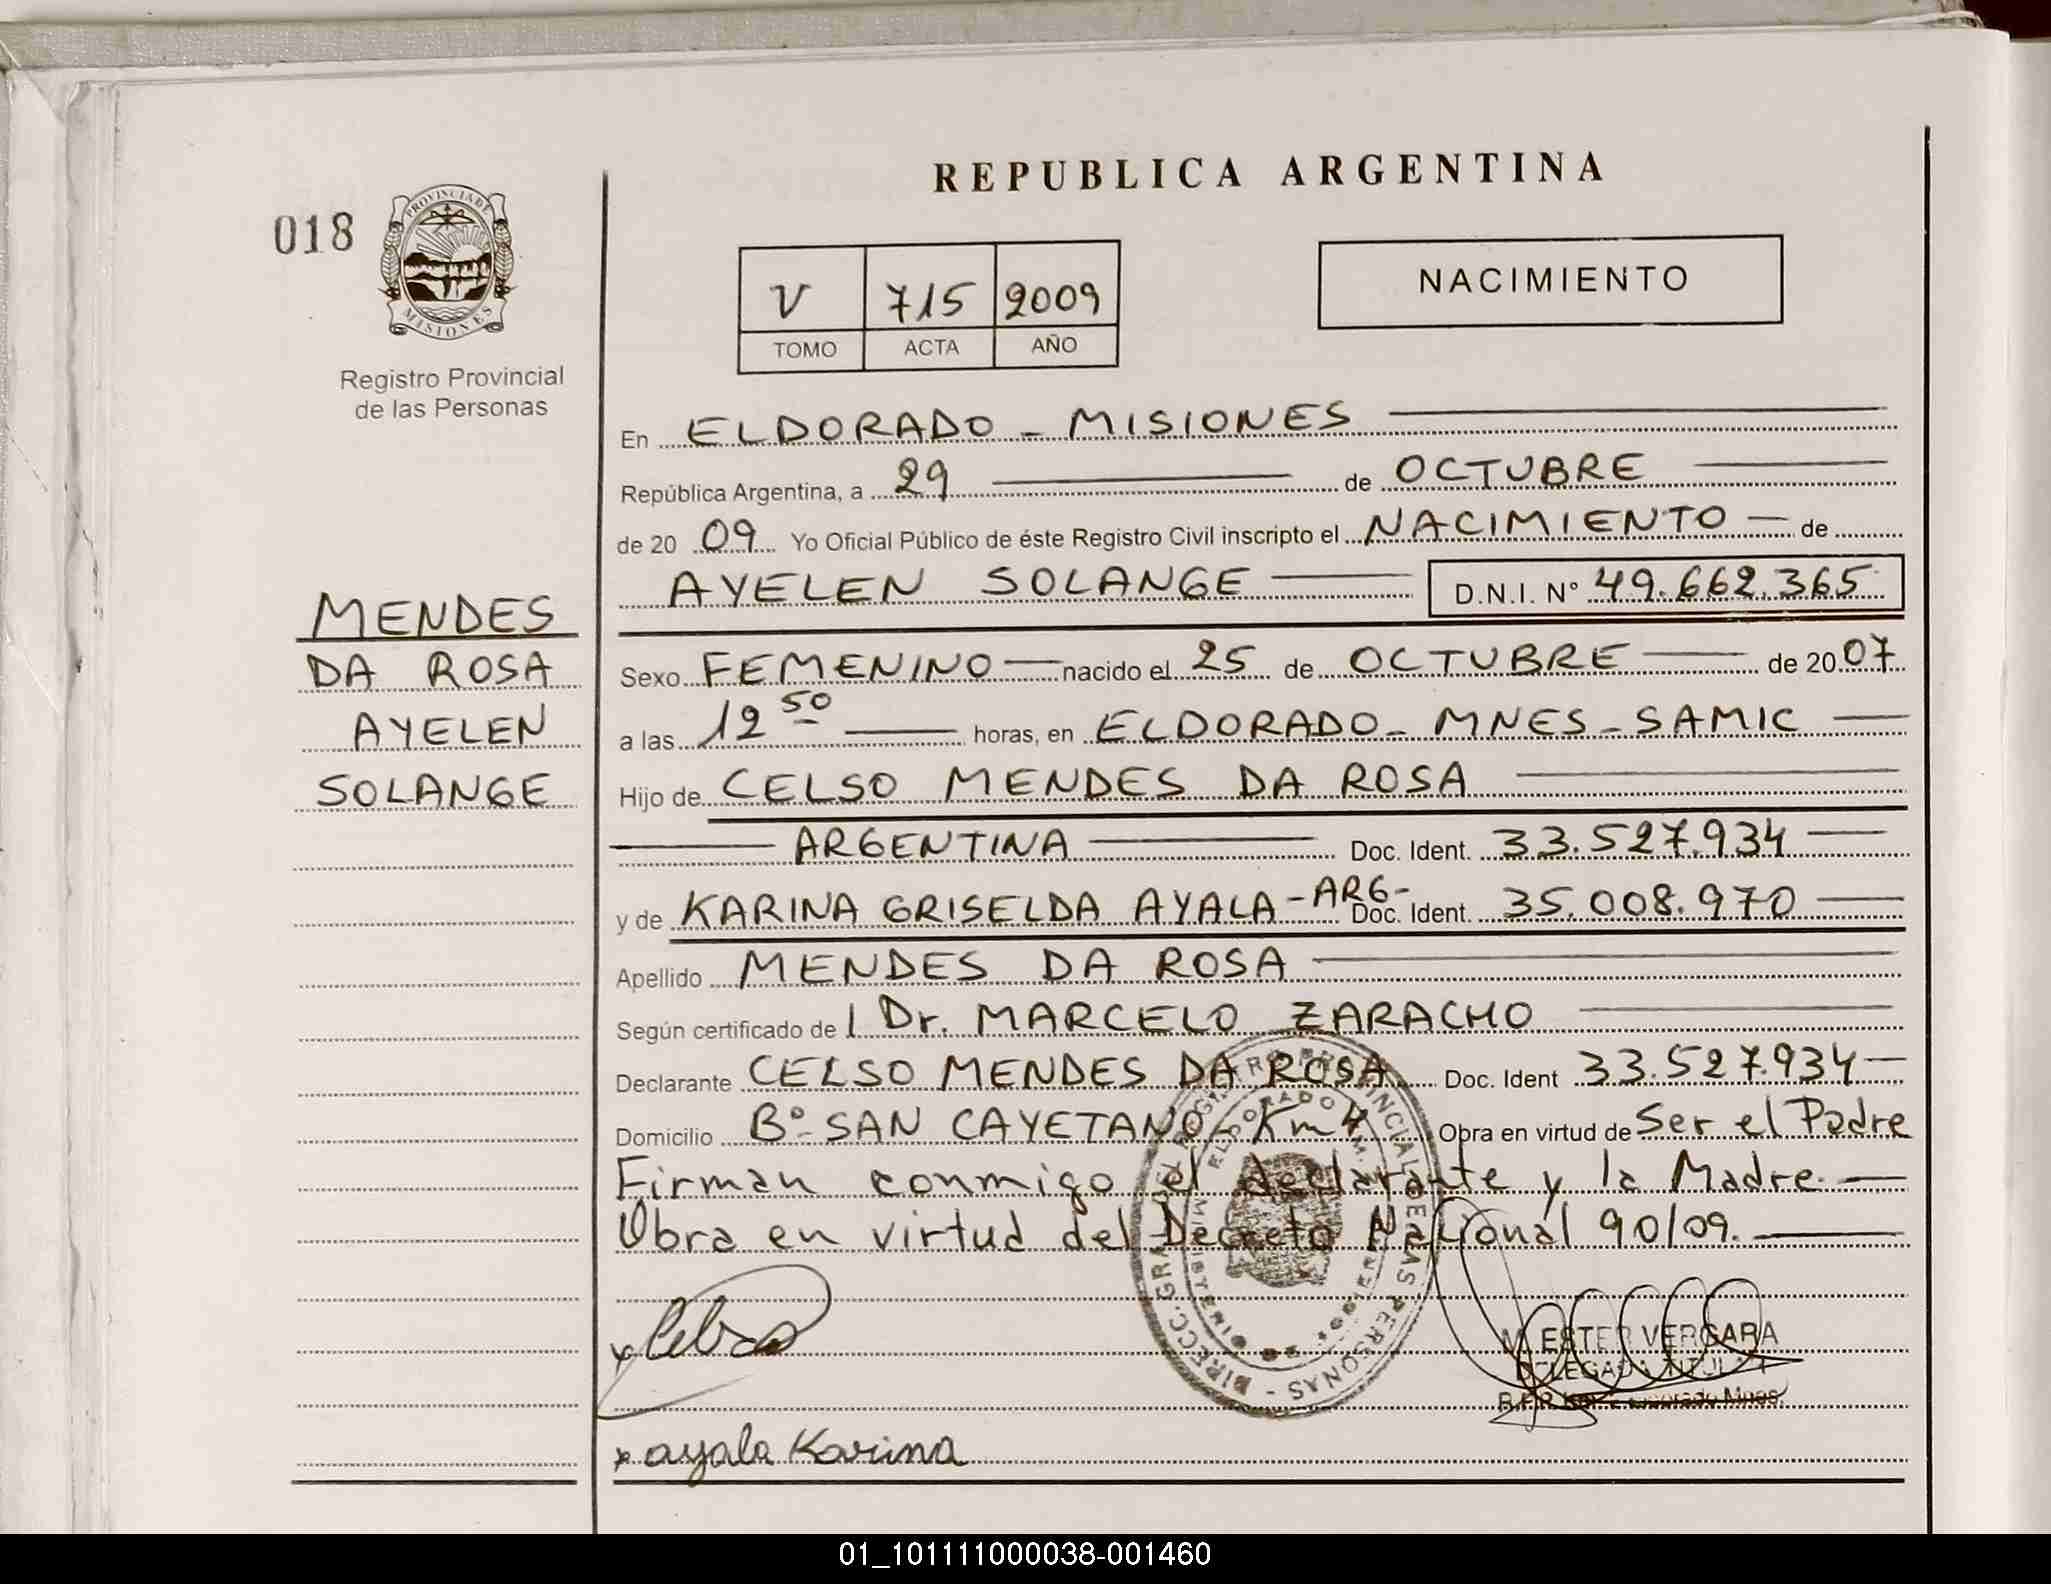 REPUBLICA ARGENTINA
018
PROVINCIA DE
MISIONES
Registro Provincial
de las Personas
V 715 2009
TOMO ACTA AÑO
NACIMIENTO
En ELDORADO - MISIONES
República Argentina, a 29 de OCTUBRE
de 20 09 Yo Oficial Público de éste Registro Civil inscripto el NACIMIENTO de
AYELEN SOLANGE D.N.I. Nº 49.662.365
MENDES
DA ROSA
AYELEN
SOLANGE
Sexo FEMENINO nacido el 25 de OCTUBRE de 20 07
a las 12 50 horas, en ELDORADO - MNES - SAMIC
Hijo de CELSO MENDES DA ROSA
ARGENTINA Doc. Ident. 33.527.934
y de KARINA GRISELDA AYALA - ARG - Doc. Ident. 35.008.970
Apellido MENDES DA ROSA
Según certificado de Dr. MARCELO ZARACHO
Declarante CELSO MENDES DA ROSA Doc. Ident 33.527.934
Domicilio Bº SAN CAYETANO - Km 4 Obra en virtud de Ser el Padre
Firman conmigo el declarante y la Madre.
Obra en virtud del Decreto Nacional 90/09.
DIRECC. GRAL. DEL REGISTRO PROVINCIAL DE LAS PERSONAS
ELDORADO
M. ESTER VERGARA
DELEGADA TITULAR
x ayala Karina
01_101111000038-001460